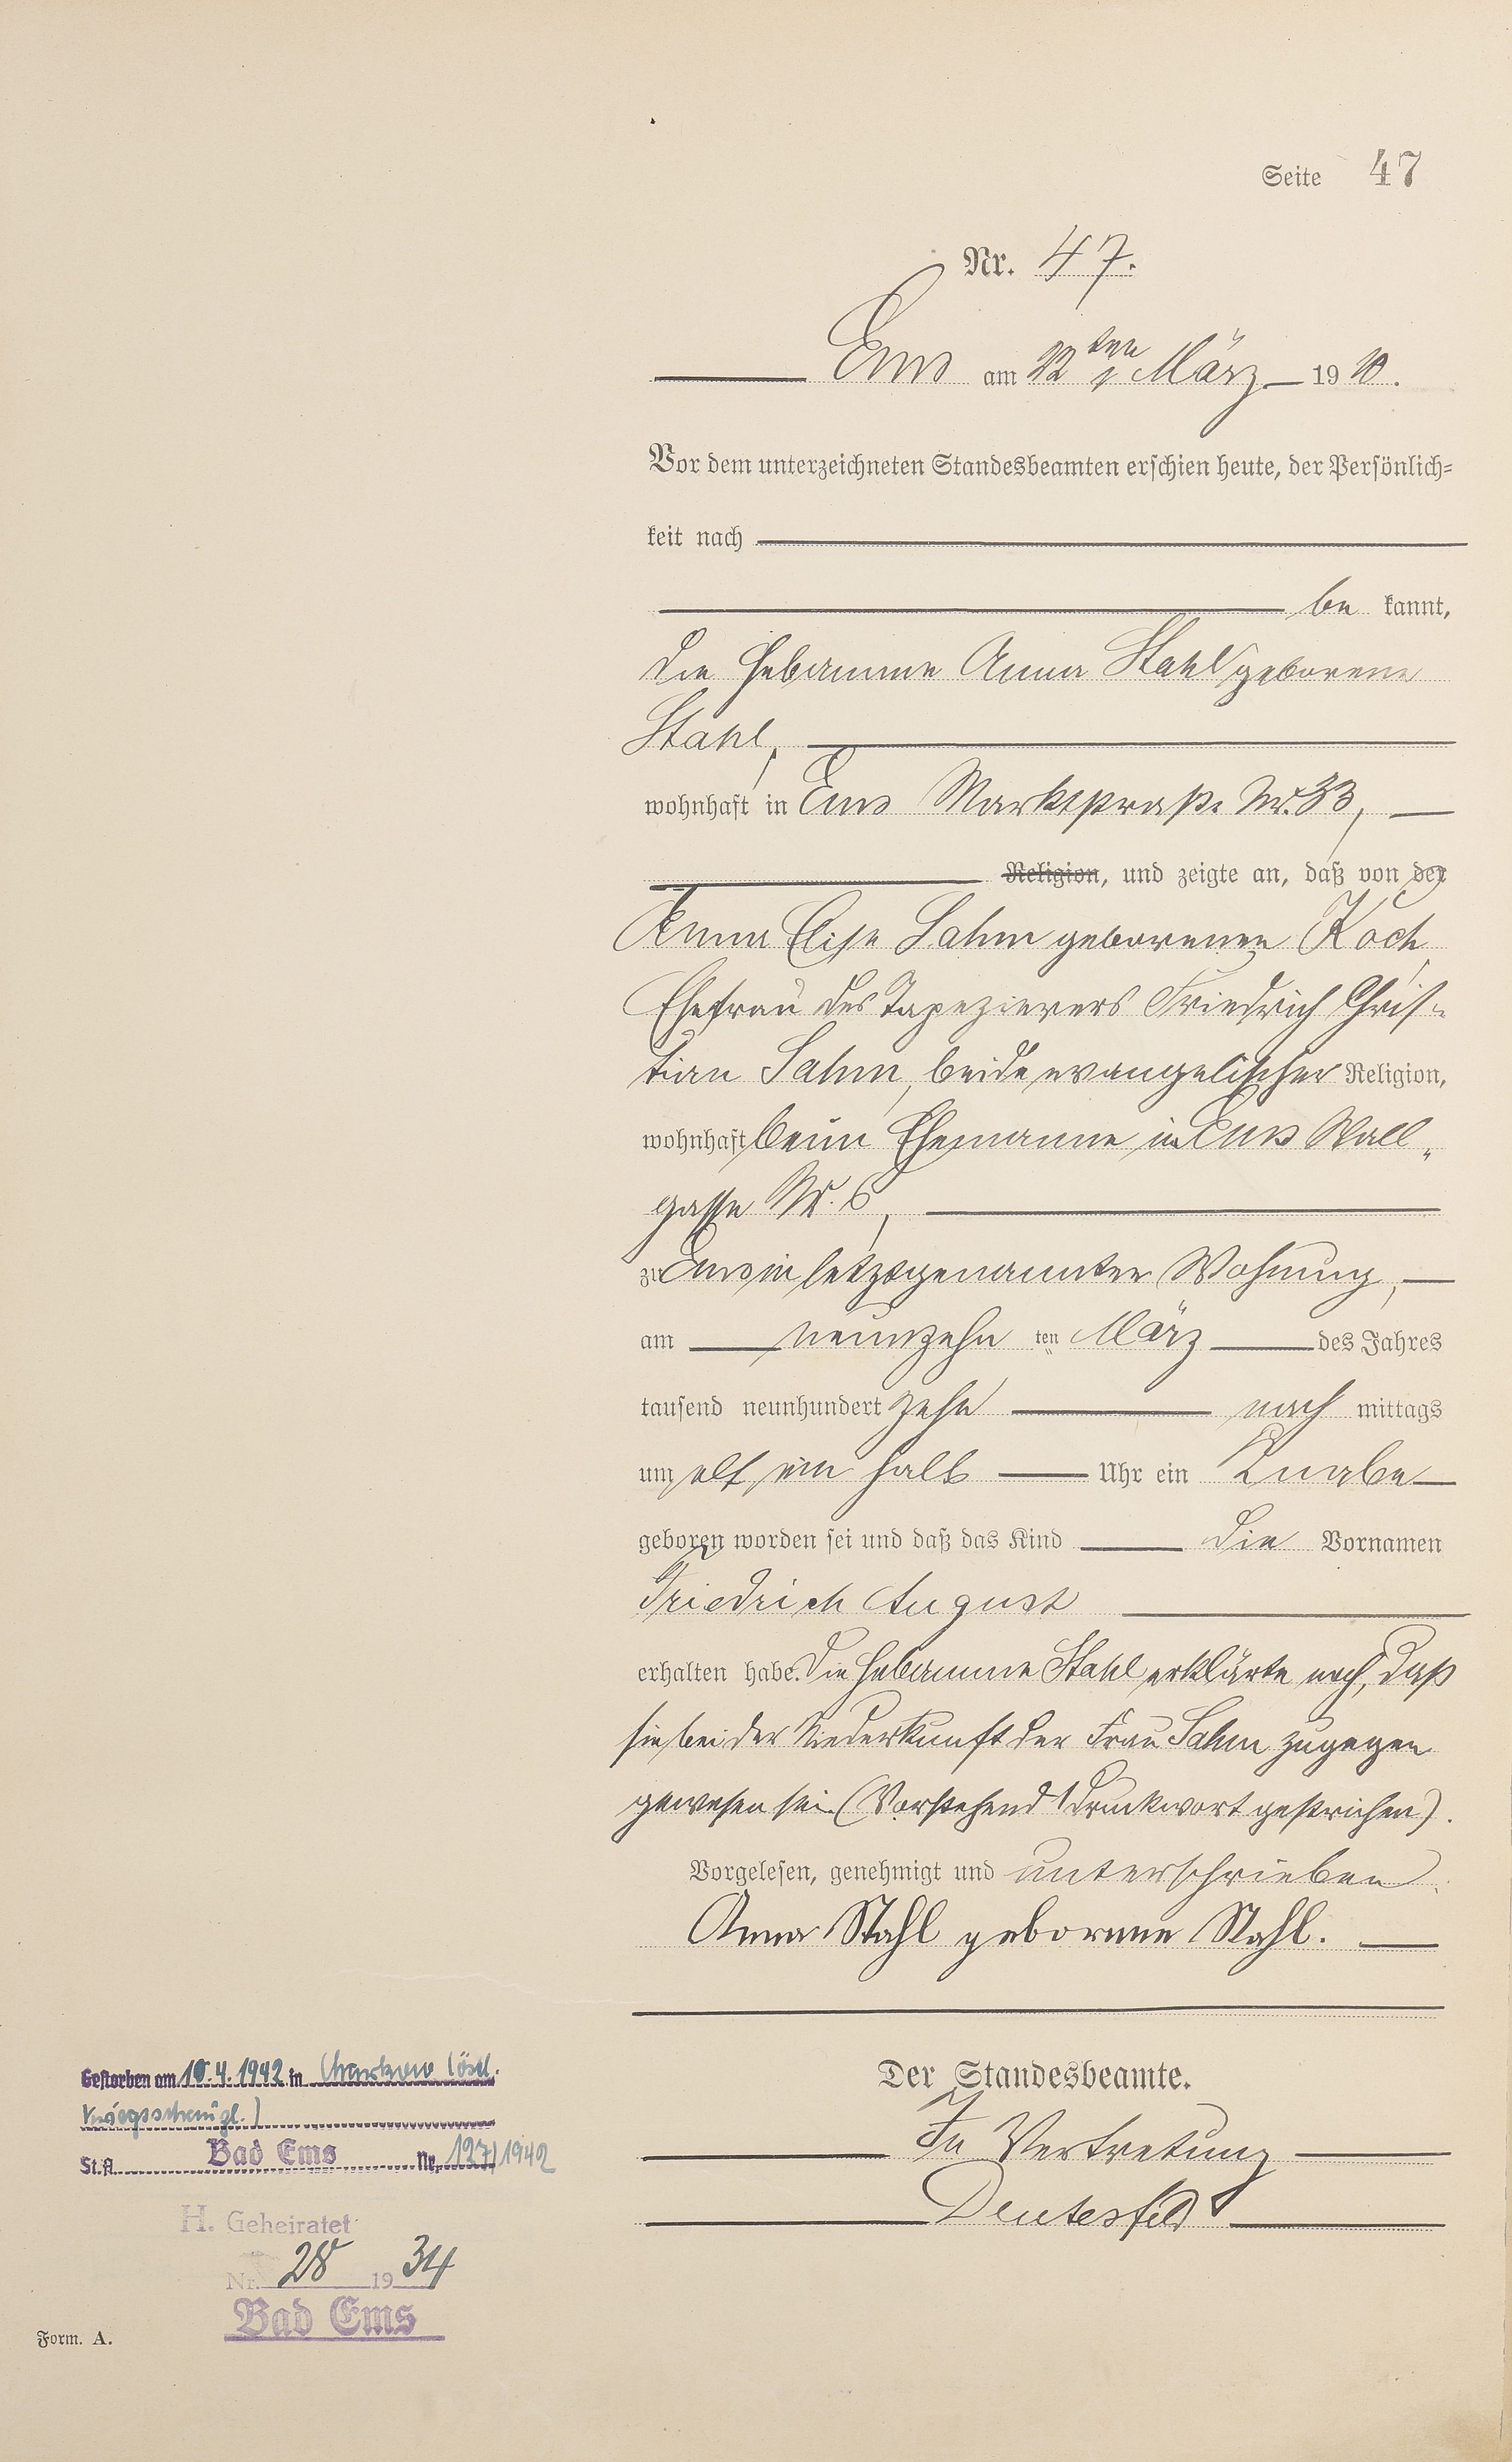 Seite 47
Nr. 47.
Ems am 22ten März 1910.
Vor dem unterzeichneten Standesbeamten erschien heute, der Persönlich=
keit nach
be kannt,
die Hebamme Anna Stahl geborene
Stahl,
wohnhaft in Ems Marktstraße Nr. 33,
Religion, und zeigte an, daß von der
Anna Elise Sahm geborenen Koch
Ehefrau des Tapezierers Friedrich Chris-
tian Sahm, beide evangelischer Religion,
wohnhaft beim Ehemanne in Ems Wall-
gasse Nr. 6,
zu Ems in letztgenannter Wohnung,
am neunzehn ten März des Jahres
tausend neunhundert zehn nach mittags
um elf ein halb Uhr ein Knabe
geboren worden sei und daß das Kind die Vornamen
Friedrich August
erhalten habe. Die Hebamme Stahl erklärte noch, daß
sie bei der Niederkunft der Frau Sahm zugegen
gewesen sei. (Vorstehend 1 Druckwort gestrichen).
Vorgelesen, genehmigt und unterschrieben.
Anna Stahl geborene Stahl.
Der Standesbeamte.
In Vertretung
Deutesfeld
Gestorben am 10.4.1942 in Charkow (östl.
Kriegsschaupl.)
St.A. Bad Ems Nr. 127/1942
H. Geheiratet
Nr. 28 1934
Bad Ems
Form. A.